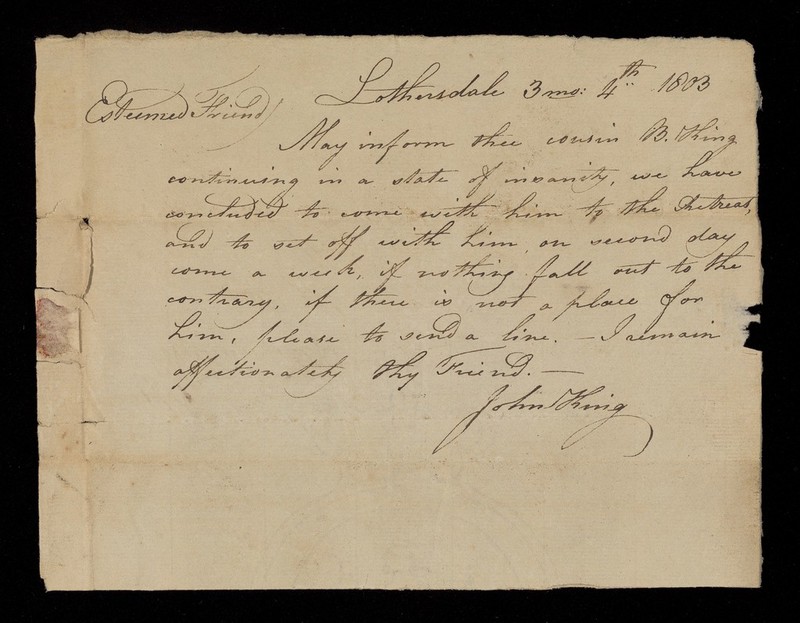 Lothersdale 3 mo: 4th 1803
Esteemed Friend
May inform thee cousin B. King
continuing in a state of insanity, we have
concluded to come with him to the Retreat,
and to set off with him, on second day
come a week, if nothing fall out to the
contrary, if there is not a place for
him, please to send a line. — I remain
affectionately thy Friend. —
John King